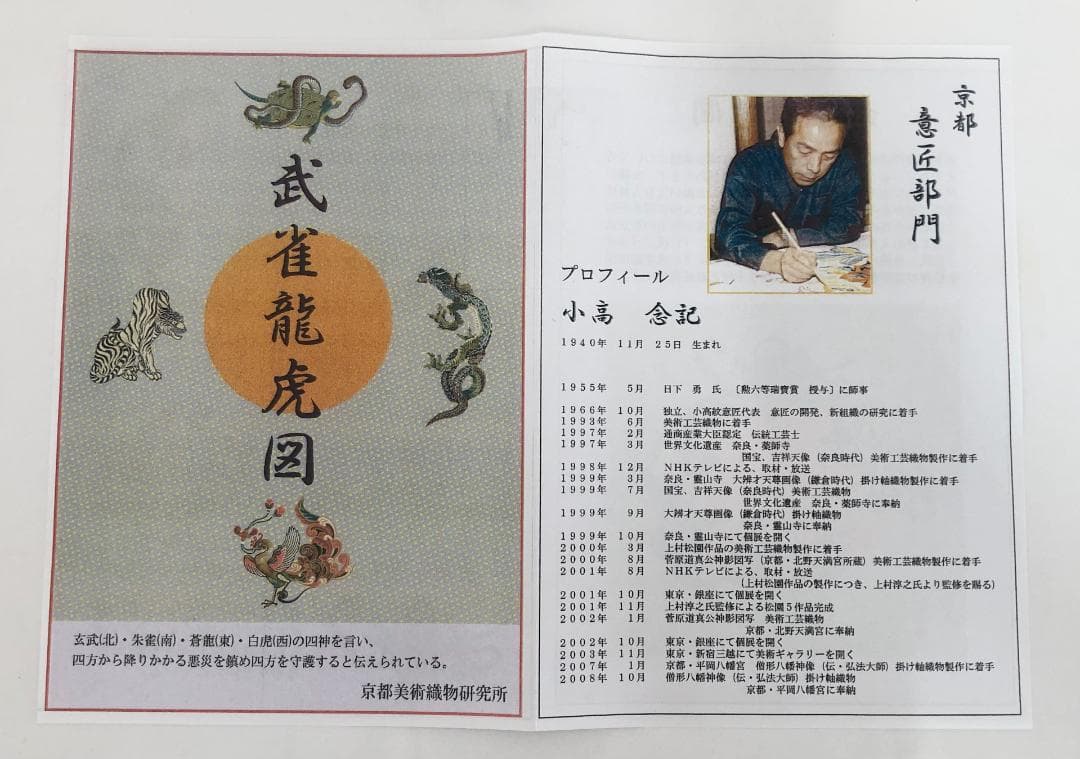 武雀龍虎図
玄武(北)・朱雀(南)・蒼龍(東)・白虎(西)の四神を言い、
四方から降りかかる悪災を鎮め四方を守護すると伝えられている。
京都美術織物研究所
京都
意匠部門
プロフィール
小高 念記
1940年 11月 25日 生まれ
1955年 5月 日下 勇 氏 〔勲六等瑞寶賞 授与〕に師事
1966年 10月 独立、小高紋意匠代表 意匠の開発、新組織の研究に着手
1993年 6月 美術工芸織物に着手
1997年 2月 通商産業大臣認定 伝統工芸士
1997年 3月 世界文化遺産 奈良・薬師寺
国宝、吉祥天像（奈良時代）美術工芸織物製作に着手
1998年 12月 NHKテレビによる、取材・放送
1999年 3月 奈良・霊山寺 大辨才天尊画像（鎌倉時代）掛け軸織物製作に着手
1999年 7月 国宝、吉祥天像（奈良時代）美術工芸織物
世界文化遺産 奈良・薬師寺に奉納
1999年 9月 大辨才天尊画像（鎌倉時代）掛け軸織物
奈良・霊山寺に奉納
1999年 10月 奈良・霊山寺にて個展を開く
2000年 3月 上村松園作品の美術工芸織物製作に着手
2000年 8月 菅原道真公神影図写（京都・北野天満宮所蔵）美術工芸織物製作に着手
2001年 8月 NHKテレビによる、取材・放送
（上村松園作品の製作につき、上村淳之氏より監修を賜る）
2001年 10月 東京・銀座にて個展を開く
2001年 11月 上村淳之氏監修による松園5作品完成
2002年 1月 菅原道真公神影図写 美術工芸織物
京都・北野天満宮に奉納
2002年 10月 東京・銀座にて個展を開く
2003年 11月 東京・新宿三越にて美術ギャラリーを開く
2007年 1月 京都・平岡八幡宮 僧形八幡神像（伝・弘法大師）掛け軸織物製作に着手
2008年 10月 僧形八幡神像（伝・弘法大師）掛け軸織物
京都・平岡八幡宮に奉納